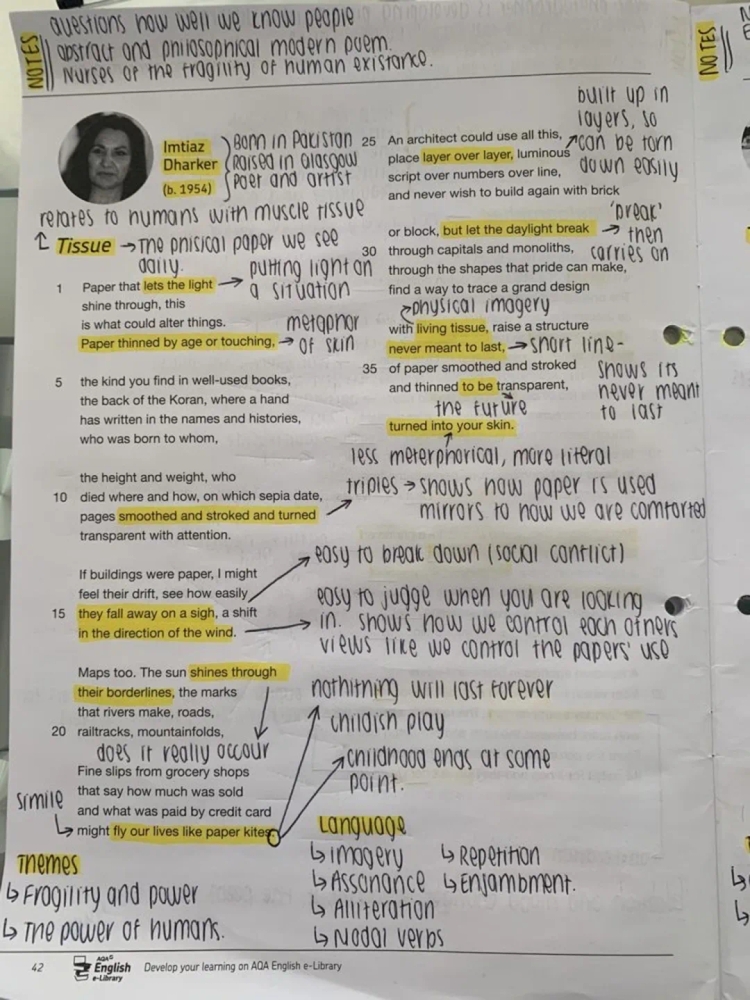 NOTES
Questions how well we know people
abstract and philosophical modern poem.
Nurses of the fragility of human existance.
NOTES
Imtiaz
Dharker
(b. 1954)
Born in Pakistan
Raised in Glasgow
Poet and artist
relates to humans with muscle tissue
Tissue → The phisical paper we see
daily.
1 Paper that lets the light → putting light on
a situation
shine through, this
is what could alter things.
Paper thinned by age or touching, → metaphor
of skin
5 the kind you find in well-used books,
the back of the Koran, where a hand
has written in the names and histories,
who was born to whom,
the height and weight, who
10 died where and how, on which sepia date,
pages smoothed and stroked and turned
transparent with attention.
triples → shows how paper is used
mirrors to how we are comforted
If buildings were paper, I might
feel their drift, see how easily
15 they fall away on a sigh, a shift
in the direction of the wind.
easy to break down (social conflict)
easy to judge when you are looking
in. shows how we control each others
views like we control the papers' use
Maps too. The sun shines through
their borderlines, the marks
that rivers make, roads,
20 railtracks, mountainfolds,
does it really occour
Fine slips from grocery shops
that say how much was sold
and what was paid by credit card
might fly our lives like paper kites.
simile
nothitning will last forever
childish play
childhood ends at some
point.
25 An architect could use all this,
place layer over layer, luminous
script over numbers over line,
and never wish to build again with brick
built up in
layers, so
can be torn
down easily
or block, but let the daylight break
30 through capitals and monoliths,
through the shapes that pride can make,
find a way to trace a grand design
'break'
→ then
carries on
physical imagery
with living tissue, raise a structure
never meant to last, → short line-
35 of paper smoothed and stroked
and thinned to be transparent,
shows its
never meant
to last
the future
turned into your skin.
less meterphorical, more literal
Themes
↳ Fragility and power
↳ The power of humans.
Language
↳ imagery ↳ Repetition
↳ Assonance ↳ Enjambment.
↳ Alliteration
↳ Nodal verbs
42 AQA English e-Library Develop your learning on AQA English e-Library